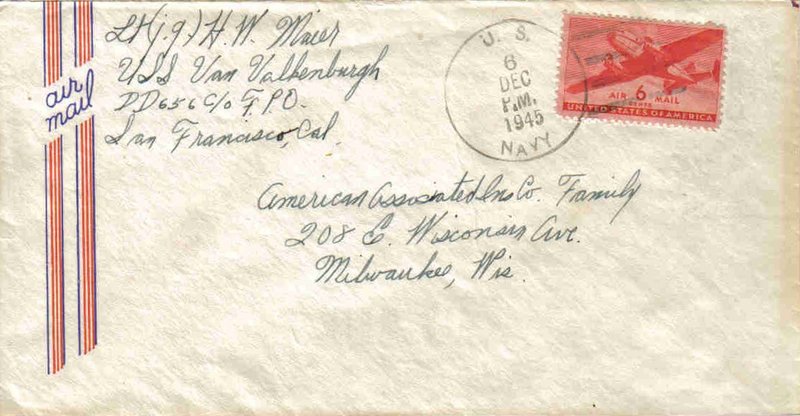 Lt(j.g.) H.W. Maier
USS Van Valkenburgh
DD656 C/o F.P.O.
San Francisco, Cal.
air
mail
U. S.
6
DEC
P.M.
1945
NAVY
AIR 6 MAIL
CENTS
UNITED STATES OF AMERICA
American Associated Ins Co. Family
208 E. Wisconsin Ave.
Milwaukee, Wis.